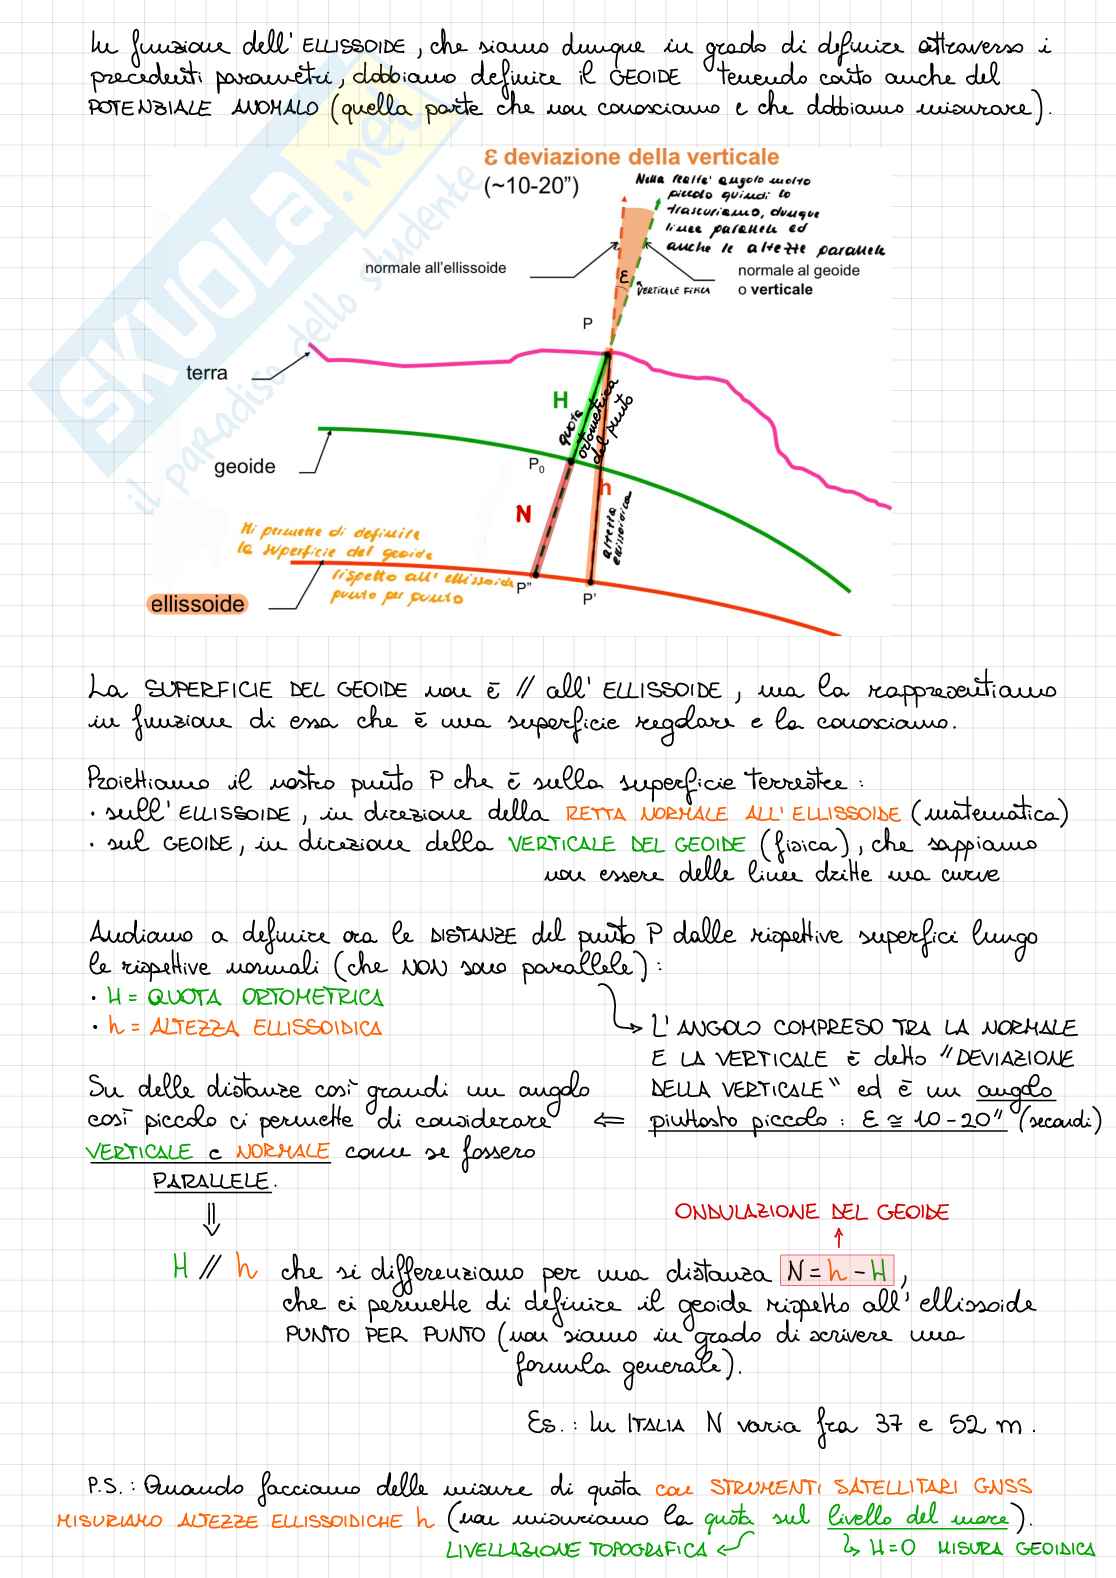 In funzione dell' ELLISSOIDE, che siamo dunque in grado di definire attraverso i
precedenti parametri, dobbiamo definire il GEOIDE tenendo conto anche del
POTENZIALE ANOMALO (quella parte che non conosciamo e che dobbiamo misurare).
SKUOLA.net
il paradiso dello studente
ε deviazione della verticale
(~10-20")
Nella realta' angolo molto
piccolo quindi lo
trascuriamo, dunque
linee parallele ed
anche le altezze parallele
normale all'ellissoide
normale al geoide
o verticale
ε
VERTICALE FISICA
P
terra
H
quota
ortometrica
del punto
geoide
P0
h
N
altezza
ellissoidica
Mi permette di definire
la superficie del geoide
rispetto all' ellissoide
punto per punto
P"
P'
ellissoide
La SUPERFICIE DEL GEOIDE non è // all' ELLISSOIDE, ma la rappresentiamo
in funzione di essa che è una superficie regolare e la conosciamo.
Proiettiamo il nostro punto P che è sulla superficie terrestre:
· sull' ELLISSOIDE, in direzione della RETTA NORMALE ALL' ELLISSOIDE (matematica)
· sul GEOIDE, in direzione della VERTICALE DEL GEOIDE (fisica), che sappiamo
non essere delle linee dritte ma curve
Andiamo a definire ora le DISTANZE del punto P dalle rispettive superfici lungo
le rispettive normali (che NON sono parallele):
· H = QUOTA ORTOMETRICA
· h = ALTEZZA ELLISSOIDICA
L'ANGOLO COMPRESO TRA LA NORMALE
E LA VERTICALE è detto "DEVIAZIONE
DELLA VERTICALE" ed è un angolo
piuttosto piccolo: ε ≅ 10-20" (secondi)
Su delle distanze così grandi un angolo
così piccolo ci permette di considerare ⇐
VERTICALE e NORMALE come se fossero
PARALLELE.
⇓
ONDULAZIONE DEL GEOIDE
↑
H // h che si differenziano per una distanza N = h - H,
che ci permette di definire il geoide rispetto all' ellissoide
PUNTO PER PUNTO (non siamo in grado di scrivere una
formula generale).
Es.: In ITALIA N varia fra 37 e 52 m.
P.S.: Quando facciamo delle misure di quota con STRUMENTI SATELLITARI GNSS
MISURIAMO ALTEZZE ELLISSOIDICHE h (non misuriamo la quota sul livello del mare).
LIVELLAZIONE TOPOGRAFICA
↳ H=0 MISURA GEOIDICA